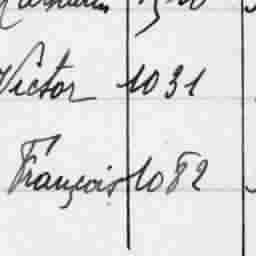 Victor 1031
François 1082